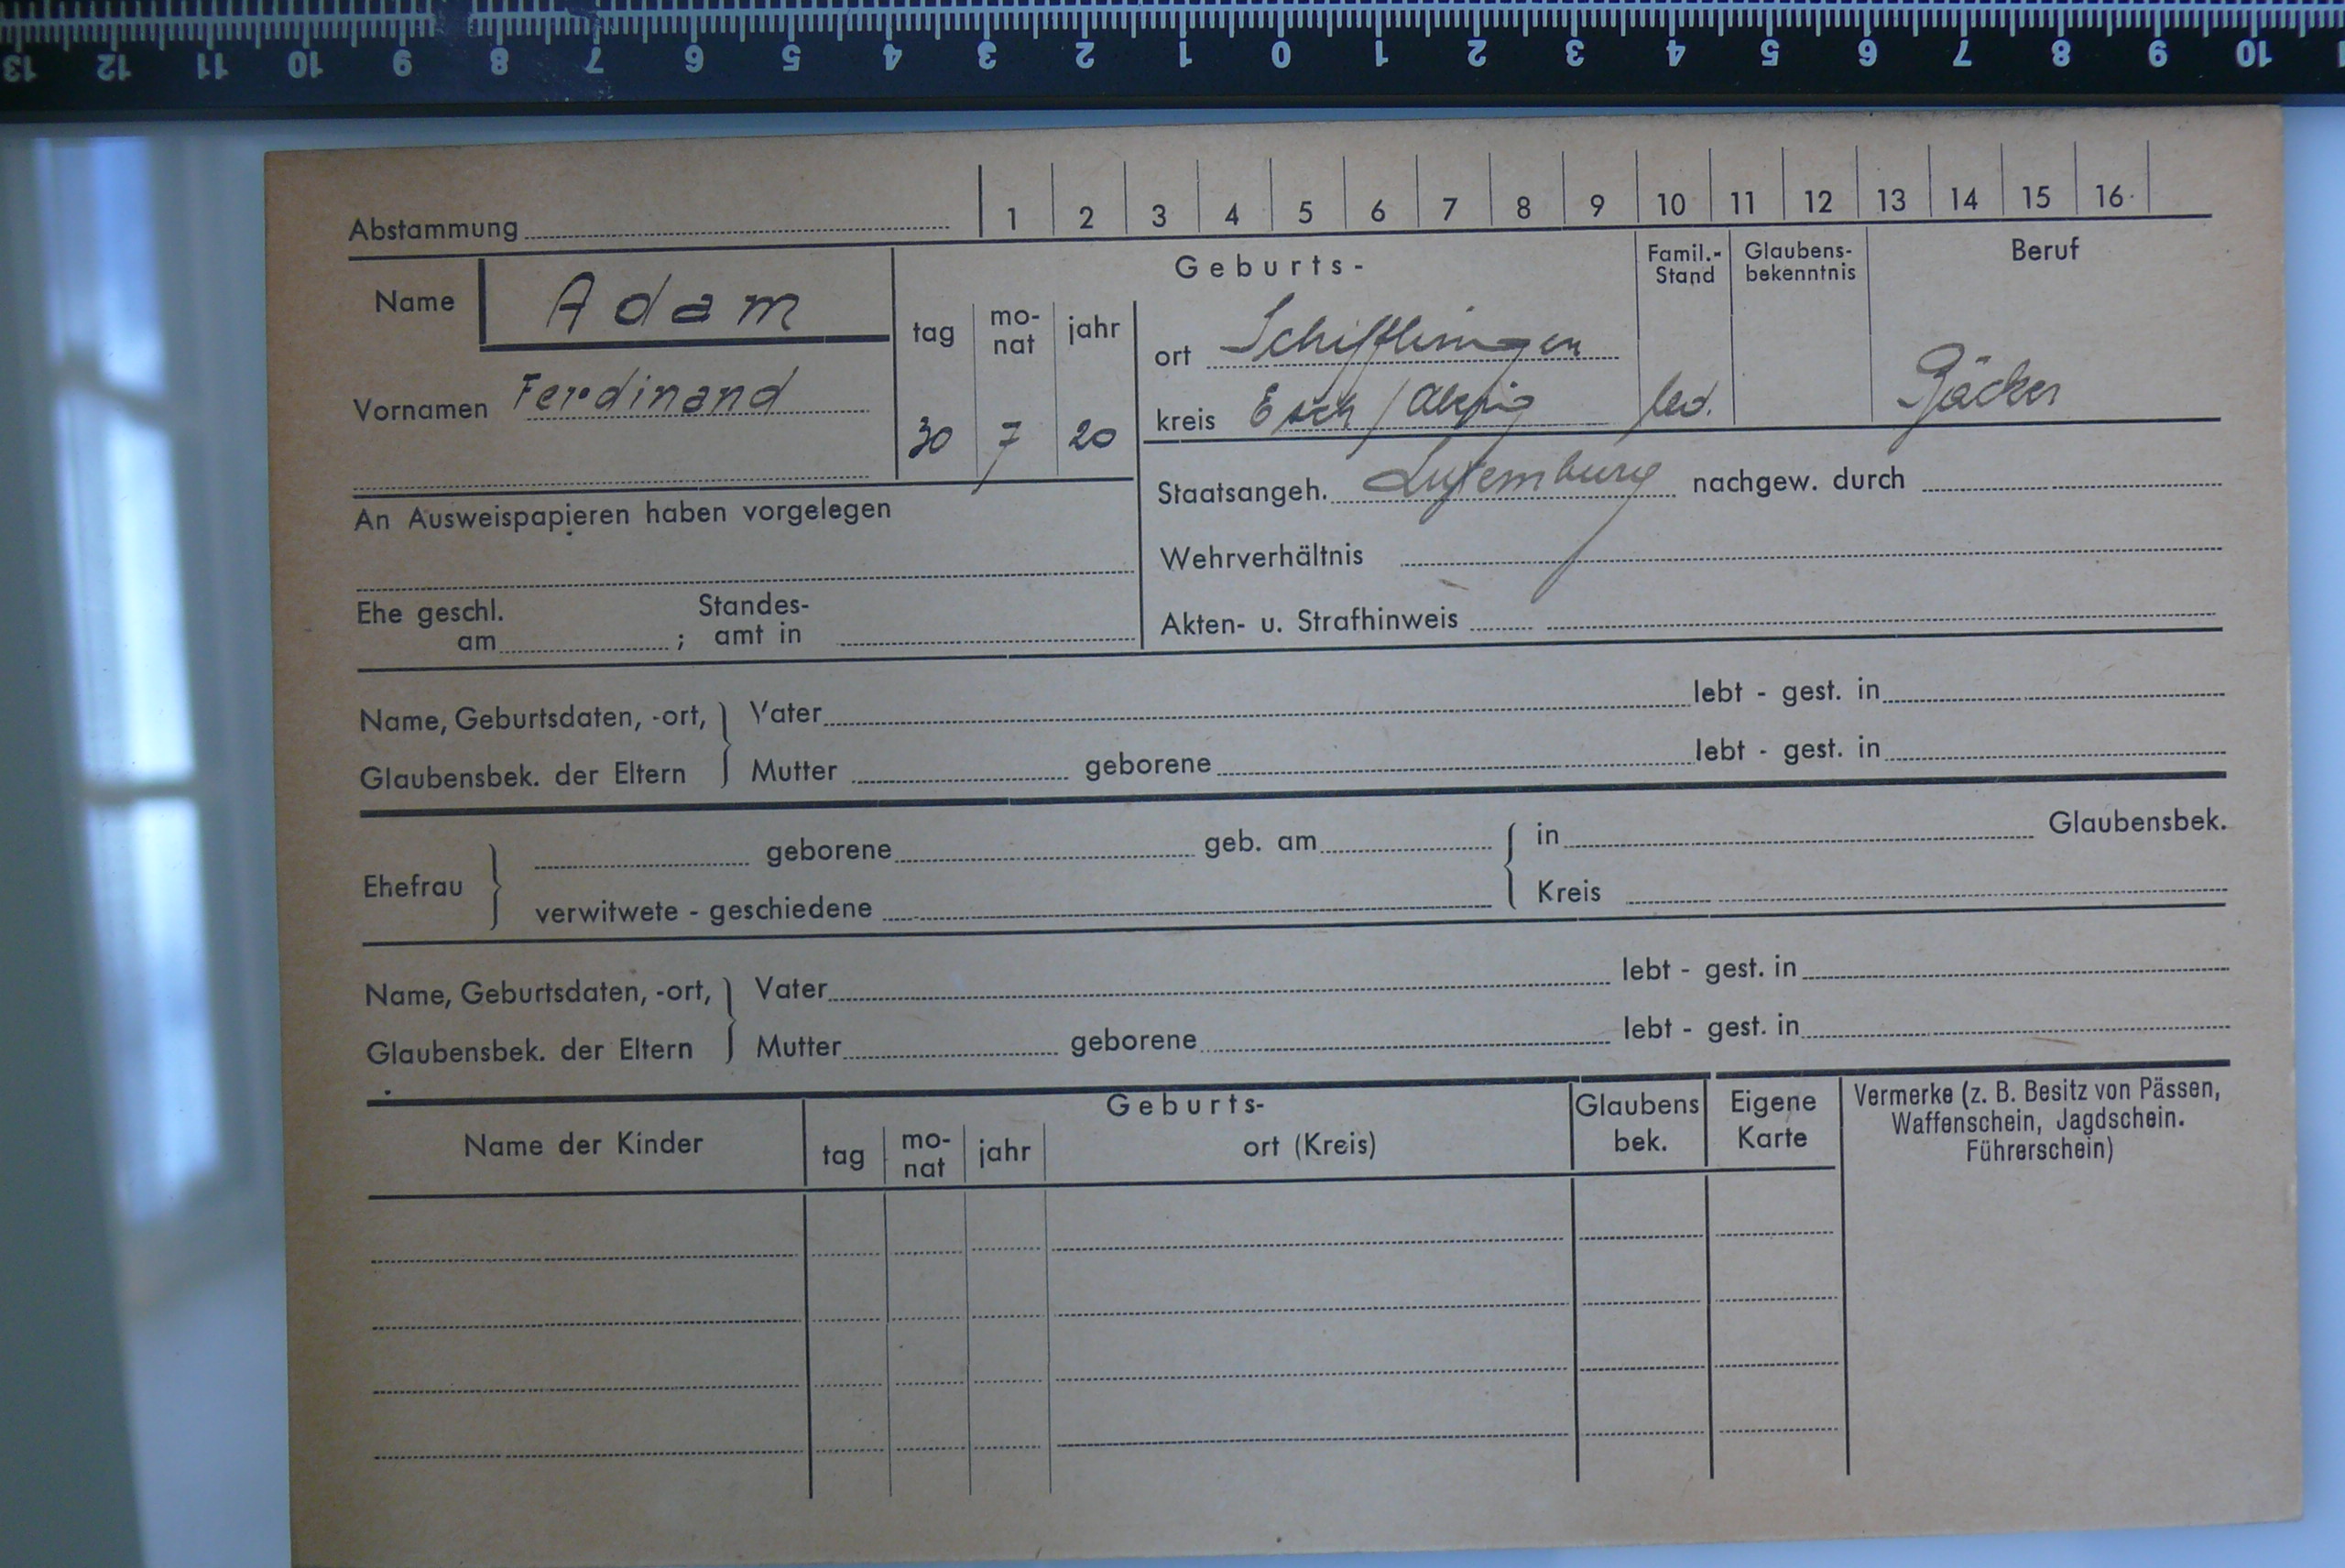 13 12 11 10 9 8 7 6 5 4 3 2 1 0 1 2 3 4 5 6 7 8 9 10
Abstammung 1 2 3 4 5 6 7 8 9 10 11 12 13 14 15 16
Name Adam
Geburts-
Famil.-Stand
Glaubens-bekenntnis
Beruf
tag mo-nat jahr
ort Schifflingen
Vornamen Ferdinand
30 7 20
kreis Esch/Alzig led. Bäcker
Staatsangeh. Luxemburg nachgew. durch
An Ausweispapieren haben vorgelegen
Wehrverhältnis
Ehe geschl. Standes-
am ; amt in
Akten- u. Strafhinweis
Name, Geburtsdaten, -ort, } Vater lebt - gest. in
Glaubensbek. der Eltern Mutter geborene lebt - gest. in
Ehefrau } geborene geb. am { in Glaubensbek.
verwitwete - geschiedene Kreis
Name, Geburtsdaten, -ort, } Vater lebt - gest. in
Glaubensbek. der Eltern Mutter geborene lebt - gest. in
Name der Kinder
Geburts-
tag mo-nat jahr ort (Kreis)
Glaubens bek.
Eigene Karte
Vermerke (z. B. Besitz von Pässen,
Waffenschein, Jagdschein.
Führerschein)